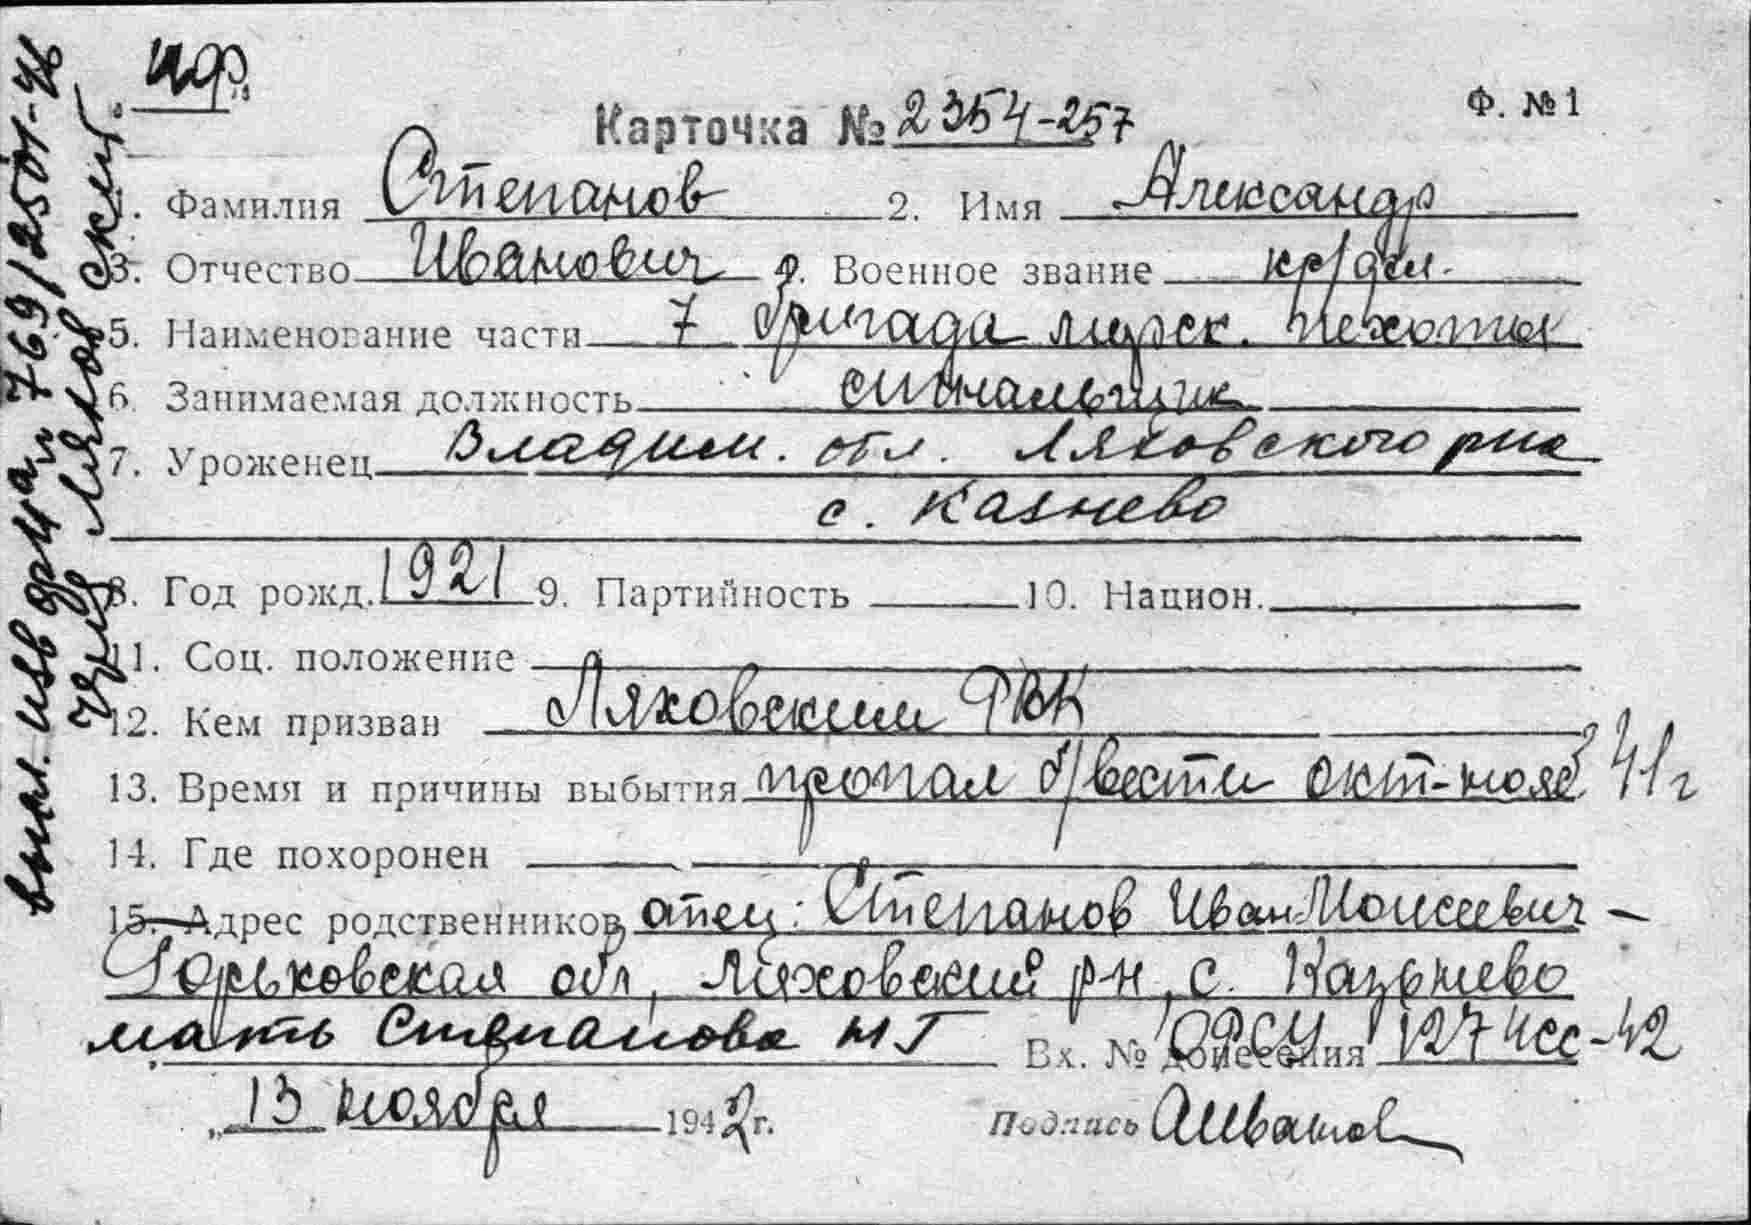 Ф. №1
Карточка № 2354-257
1. Фамилия Степанов 2. Имя Александр
3. Отчество Иванович Военное звание кр/фл.
5. Наименование части 7 бригада морск. пехоты
6. Занимаемая должность сигнальщик
7. Уроженец Владим. обл. Ляховского р-на
с. Казнево
8. Год рожд. 1921 9. Партийность 10. Национ.
11. Соц. положение
12. Кем призван Ляховским РВК
13. Время и причины выбытия пропал б/вести окт-нояб 41 г
14. Где похоронен
15. Адрес родственников отец: Степанов Иван Моисеевич -
Горьковская обл, Ляховский р-н, с. Казьнево
мать Степанова М Г Вх. № донесения ОРСУ 1274сс-42
„13 ноября 1942 г. Подпись АИванов
высл. изв ф№4 а n 769/2501-46
чрз Ляхов